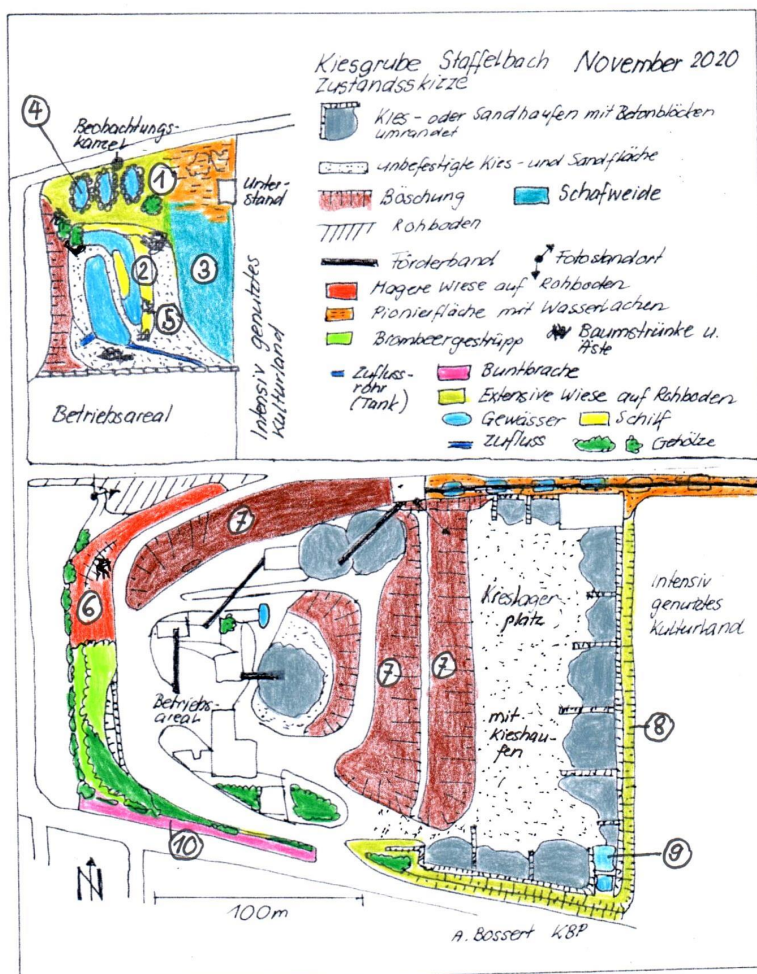 Kiesgrube Staffelbach November 2020
Zustandsskizze
Kies- oder Sandhaufen mit Betonblöcken
umrandet
unbefestigte Kies- und Sandfläche
Böschung
Schafweide
Rohboden
Förderband
Fotostandort
Magere Wiese auf Rohboden
Pionierfläche mit Wasserlachen
Brombeergestrüpp
Baumstrünke u.
Äste
Zufluss-
rohr
(Tank)
Buntbrache
Extensive Wiese auf Rohboden
Gewässer
Schilf
Zufluss
Gehölze
4
Beobachtungs-
kanzel
1
Unter-
stand
2
3
5
Intensiv genutztes
Kulturland
Betriebsareal
7
6
Kieslager
platz
Intensiv
genutztes
Kulturland
7
7
Betriebs-
areal
mit
Kieshau-
fen
8
10
9
N
100m
A. Bossert KBP